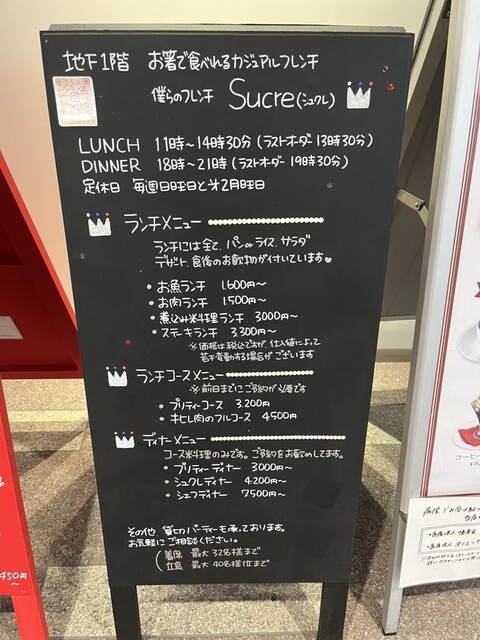 地下1階 お箸で食べれるカジュアルフレンチ
僕らのフレンチ Sucre(シュクレ)
LUNCH 11時〜14時30分 (ラストオーダ 13時30分)
DINNER 18時〜21時 (ラストオーダ 19時30分)
定休日 毎週日曜日と第2月曜日
ランチメニュー
ランチには全て、パンorライス、サラダ
デザート、食後のお飲物が付いています♥
・お魚ランチ 1.600円〜
・お肉ランチ 1.500円〜
・煮込み米料理ランチ 3000円〜
・ステーキランチ 3.300円〜
※価格は税込ですが、仕入値によって
若干変動する場合がございます
ランチコースメニュー
※前日までにご予約が必要です
・プリティーコース 3.200円
・牛ヒレ肉のフルコース 4500円
ディナーメニュー
コース料理のみです。ご予約をお勧めしてます。
・プリティーディナー 3000円〜
・シュクレディナー 4200円〜
・シェフディナー 7500円〜
その他、貸切パーティーも承っております。
お気軽にご相談ください。
(着席 最大32名様まで
立食 最大40名様位まで)
450円
〜
コーヒー